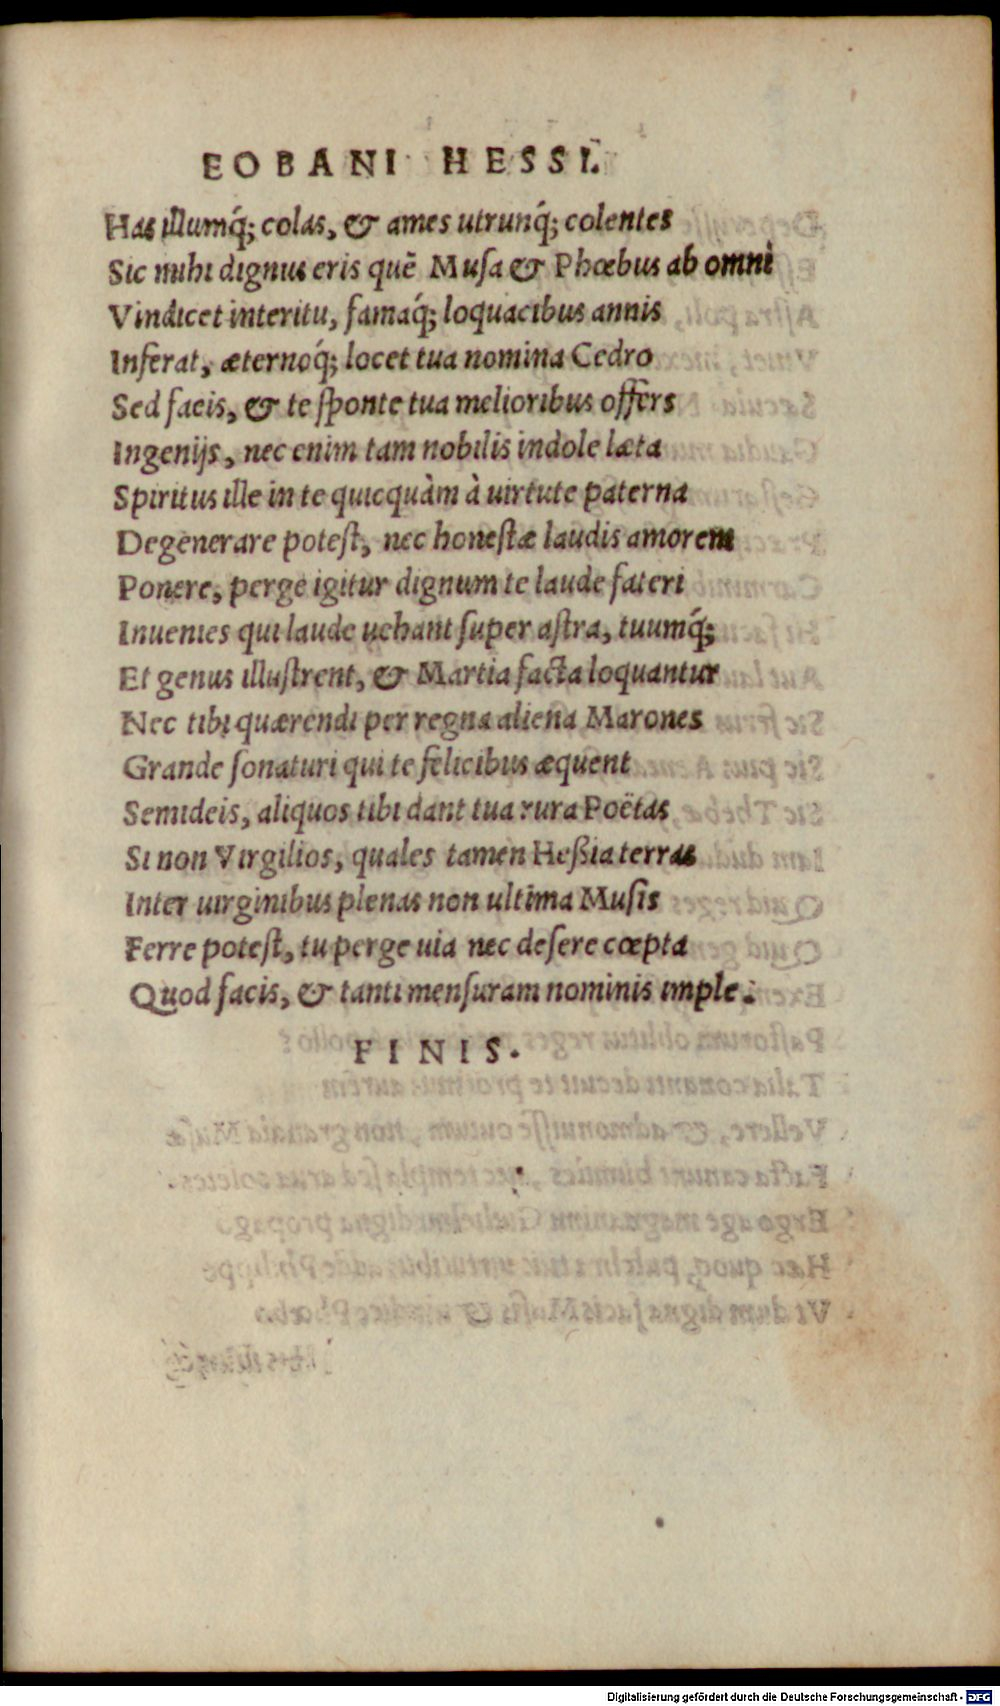 EOBANI HESSI.
Has illumq́; colas, & ames utrunq́; colentes
Sic mihi dignus eris quẽ Musa & Phœbus ab omni
Vindicet interitu, famaq́; loquacibus annis
Inferat, æternoq́; locet tua nomina Cedro
Sed facis, & te sponte tua melioribus offers
Ingenijs, nec enim tam nobilis indole læta
Spiritus ille in te quicquàm à uirtute paterna
Degenerare potest, nec honestæ laudis amorem
Ponere, perge igitur dignum te laude fateri
Inuenies qui laude uehant super astra, tuumq́;
Et genus illustrent, & Martia facta loquantur
Nec tibi quærendi per regna aliena Marones
Grande sonaturi qui te felicibus æquent
Semideis, aliquos tibi dant tua rura Poëtas
Si non Virgilios, quales tamen Heßia terras
Inter uirginibus plenas non ultima Musis
Ferre potest, tu perge uia nec desere cœpta
Quod facis, & tanti mensuram nominis imple.
FINIS.
Digitalisierung gefördert durch die Deutsche Forschungsgemeinschaft - DFG